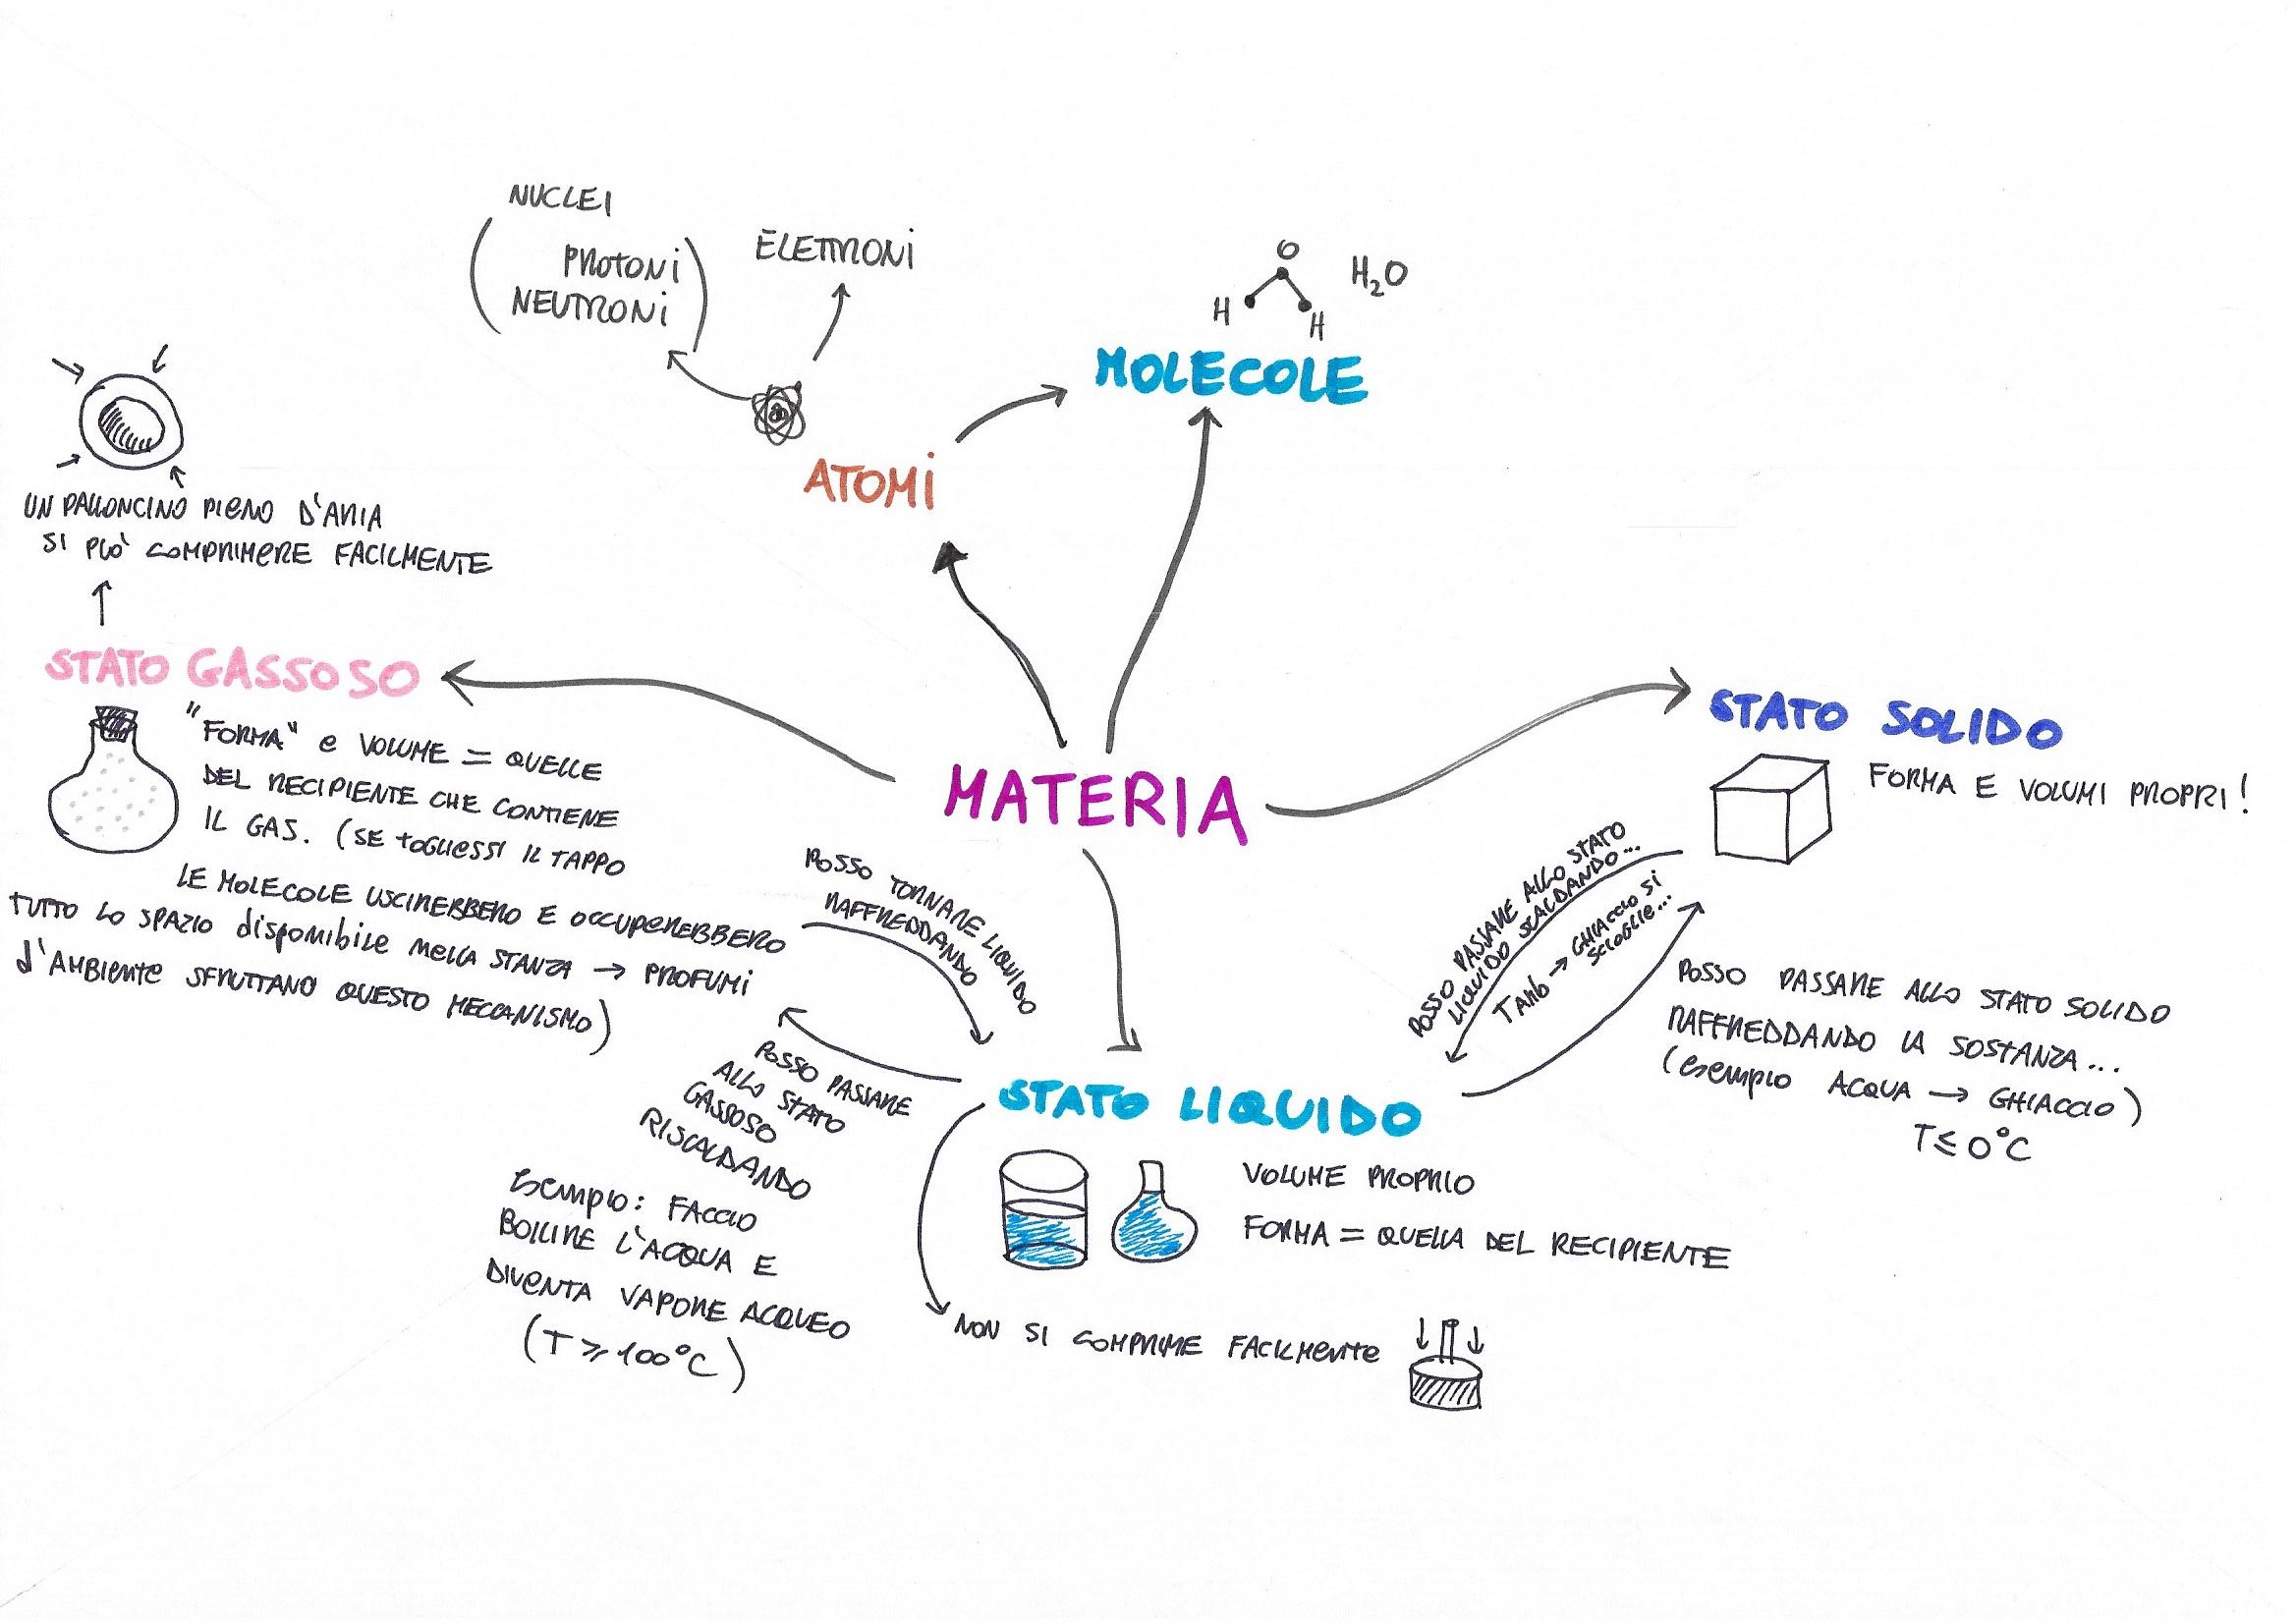 NUCLEI
PROTONI
NEUTRONI
ELETTRONI
O
H
H
H₂O
MOLECOLE
ATOMI
UN PALLONCINO PIENO D'ARIA
SI PUÒ COMPRIMERE FACILMENTE
STATO GASSOSO
"FORMA" e VOLUME = QUELLE
DEL RECIPIENTE CHE CONTIENE
IL GAS. (SE TOGLIESSI IL TAPPO
LE MOLECOLE USCIREBBERO E OCCUPEREBBERO
TUTTO LO SPAZIO disponibile nella STANZA → PROFUMI
d'AMBIENTE SFRUTTANO QUESTO MECCANISMO)
MATERIA
STATO SOLIDO
FORMA E VOLUMI PROPRI!
POSSO PASSARE ALLO STATO
LIQUIDO SCALDANDO...
TAMB → GHIACCIO SI
SCIOGLIE...
POSSO PASSARE ALLO STATO SOLIDO
RAFFREDDANDO LA SOSTANZA...
(esempio ACQUA → GHIACCIO)
T ≤ 0°C
POSSO TORNARE LIQUIDO
RAFFREDDANDO
POSSO PASSARE
ALLO STATO
GASSOSO
RISCALDANDO
Esempio: FACCIO
BOLLIRE L'ACQUA E
DIVENTA VAPORE ACQUEO
(T ≥ 100°C)
STATO LIQUIDO
VOLUME PROPRIO
FORMA = QUELLA DEL RECIPIENTE
NON SI COMPRIME FACILMENTE